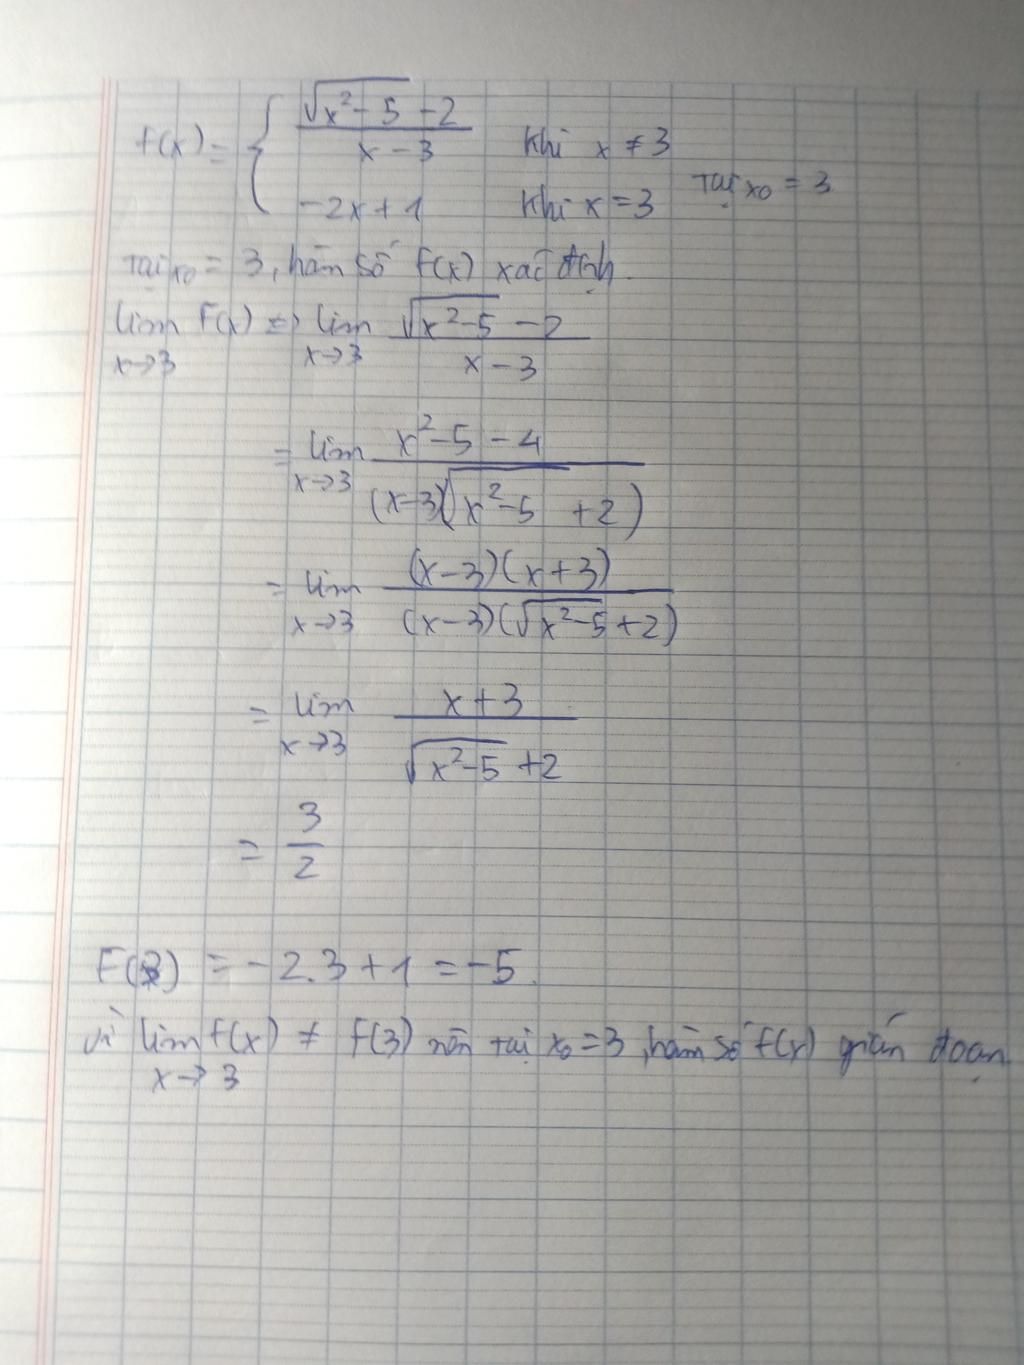 f(x) = { (√(x²-5) - 2)/(x - 3) Khi x ≠ 3
-2x + 1 Khi x = 3 Tại x₀ = 3
Tại x₀ = 3, hàm số f(x) xác định.
lim x→3 F(x) => lim x→3 (√(x²-5) - 2)/(x - 3)
= lim x→3 (x²-5 - 4)/((x-3)(√(x²-5) + 2))
= lim x→3 ((x-3)(x+3))/((x-3)(√(x²-5) + 2))
= lim x→3 (x+3)/(√(x²-5) + 2)
= 3/2
F(3) = -2.3 + 1 = -5.
Vì lim x→3 f(x) ≠ f(3) nên tại x₀ = 3, hàm số f(x) gián đoạn